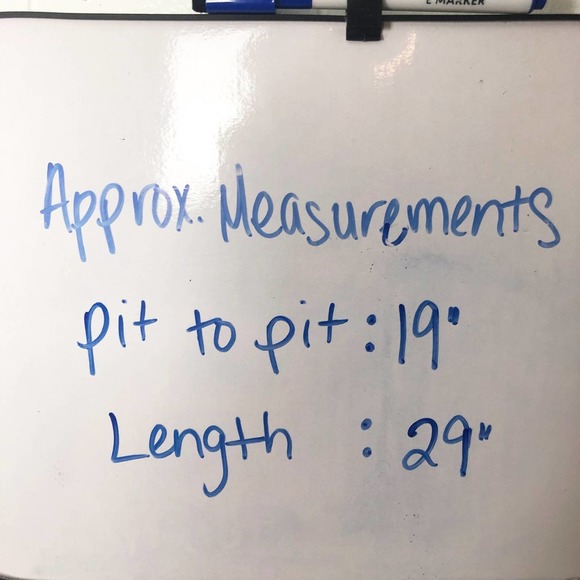 E MARKER
Approx. Measurements
pit to pit : 19"
Length : 29"